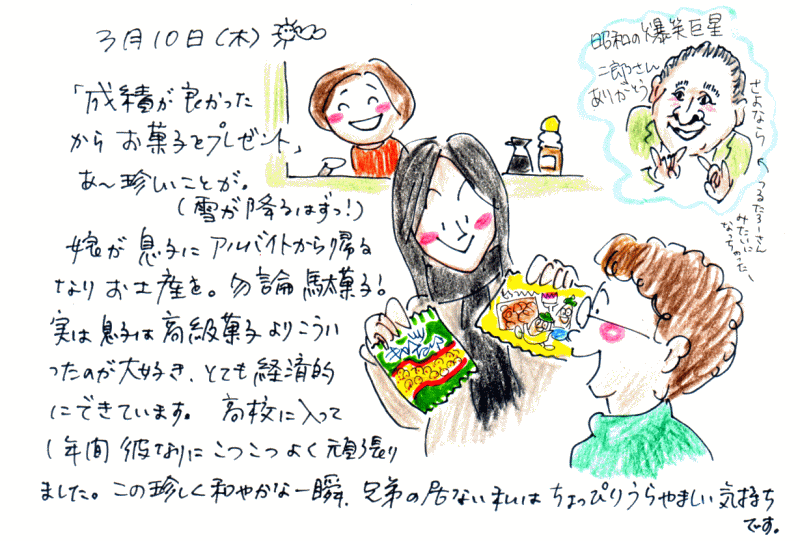 3月10日(木)
「成績が良かった
からお菓子をプレゼント」
あ〜珍しいことが。
(雪が降るはずっ!)
嫁が息子にアルバイトから帰る
なりお土産を。勿論駄菓子!
実は息子は高級菓子よりこうい
ったのが大好き、とても経済的
にできています。 高校に入って
1年間彼なりにこつこつよく頑張り
ました。この珍しく和やかな一瞬、兄弟の居ない私はちょっぴりうらやましい気持ち
です。
昭和の爆笑巨星
二郎さん
ありがとう
さよなら
つるたろーさん
みたいに
なっちゃったー